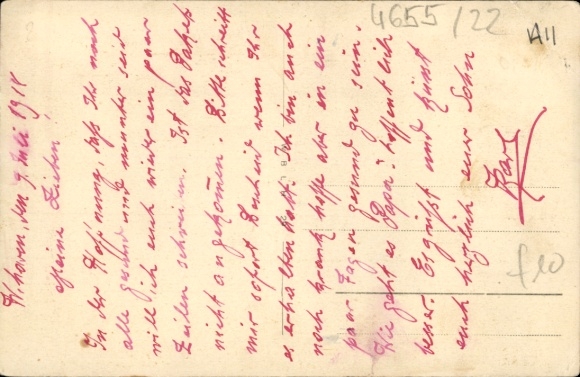 W'haven, den 9. Juli 1918
Meine Lieben!
In der Hoffnung, daß Ihr noch
alle gesund und munter seid
will ich euch wieder ein paar
Zeilen schreiben. Ist das Paket
nicht angekommen. Bitte schreibt
mir sofort Bescheid wenn Ihr
es erhalten habt. Ich bin auch
noch krank hoffe aber in ein
paar Tagen gesund zu sein.
Wie geht es Papa? hoffentlich
besser. Es grüßt und küsst
euch herzlich euer Sohn
Karl
4655/22
A11
f 10